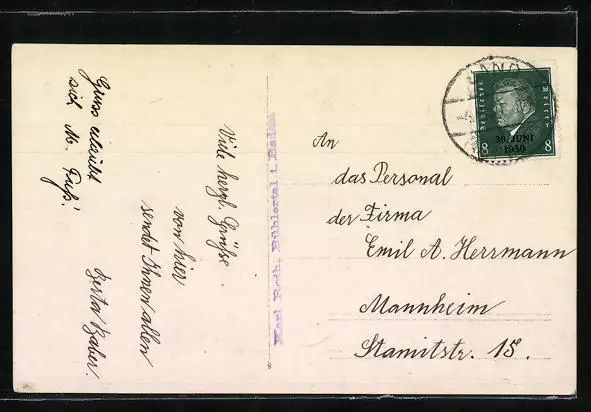 Viele herzl. Grüsse
von hier
sendet Ihnen allen
Gruss erlaubt
sich M. Fuß.
Karl Roth, Bühlertal i. Baden
Deutsches Reich
30. JUNI
1930
8 8
An
das Personal
der Firma
Emil A. Herrmann
Mannheim
Stamitzstr. 15.